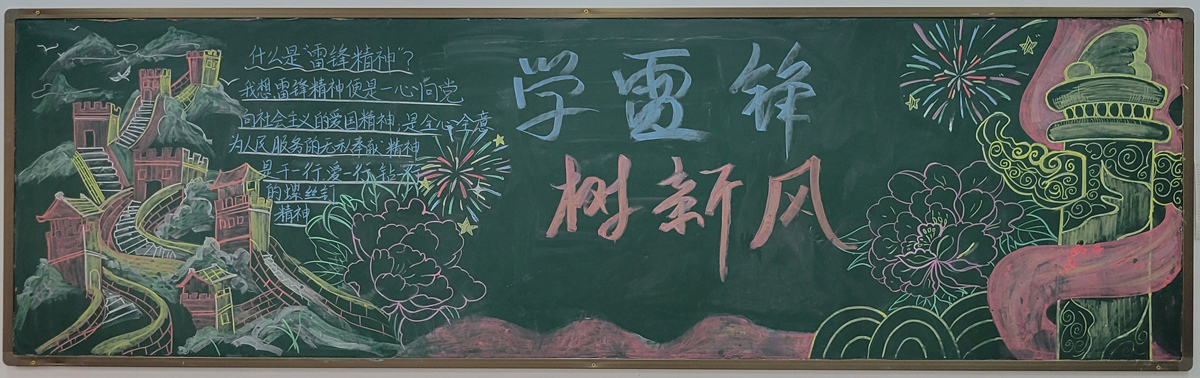 什么是"雷锋精神"?
我想雷锋精神便是一心向党
向社会主义的爱国精神,是全心全意
为人民服务的无私奉献精神
是干一行,爱一行,钻
的螺丝钉
精神
学雷锋
树新风